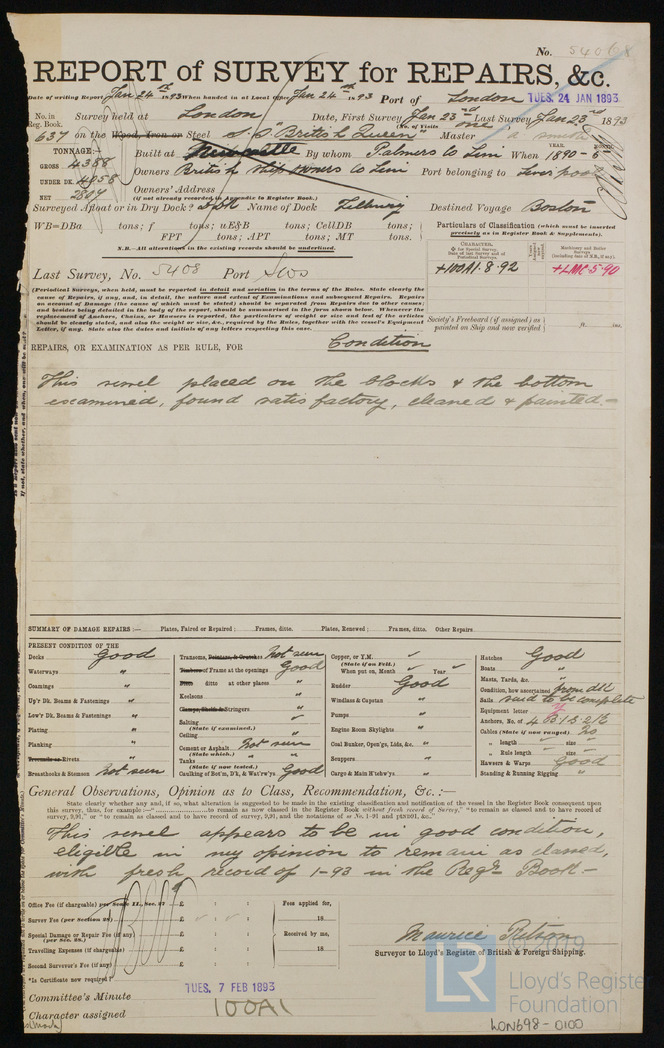 No. 54068
REPORT of SURVEY for REPAIRS, &c.
Date of writing Report Jan 24th 1893 When handed in at Local Office Jan 24th 1893 Port of London TUES. 24 JAN 1893
No. in Reg. Book. Survey held at London Date, First Survey Jan 23rd Last Survey Jan 23rd 1893
(No. of Visits one)
637 on the Wood, Iron or Steel S.S. "British Queen" Master
TONNAGE: Built at Newcastle By whom Palmers Co Lim When 1890-5
YEAR. MONTH
GROSS 4388
Owners British Ship owners Co Lim Port belonging to Liverpool
UNDER DK. 4058
Owners' Address
NET
(if not already recorded in Appendix to Register Book.)
Surveyed Afloat or in Dry Dock? Name of Dock Tilbury Destined Voyage Boston
WB=DBa tons; f tons; uE&B tons; CellDB tons;
FPT tons; APT tons; MT tons.
N.B.—All alterations in the existing records should be underlined.
Particulars of Classification (which must be inserted
precisely as in Register Book & Supplements).
CHARACTER.
+100A1.8.92 +LMC.5.90
Last Survey, No. 5408 Port
(Periodical Surveys, when held, must be reported in detail and seriatim in the terms of the Rules. State clearly the
cause of Repairs, if any, and, in detail, the nature and extent of Examinations and subsequent Repairs. Repairs
on account of Damage (the cause of which must be stated) should be separated from Repairs due to other causes;
and besides being detailed in the body of the report, should be summarised in the form shewn below. Whenever the
replacement of Anchors, Chains, or Hawsers is reported, the particulars of weight or size and test of the articles
should be clearly stated, and also the weight or size, &c., required by the Rules, together with the vessel's Equipment
Letter, if any. State also the dates and initials of any letters respecting this case.
Society's Freeboard (if assigned) as
painted on Ship and now verified ft. ins.
REPAIRS, OR EXAMINATION AS PER RULE, FOR Condition
This vessel placed on the blocks & the bottom
examined, found satisfactory, cleaned & painted.—
SUMMARY OF DAMAGE REPAIRS:— Plates, Faired or Repaired; Frames, ditto. Plates, Renewed; Frames, ditto. Other Repairs
PRESENT CONDITION OF THE
Decks Good
Waterways "
Coamings "
Up'r Dk. Beams & Fastenings "
Low'r Dk. Beams & Fastenings "
Plating "
Planking "
Treenails or Rivets "
Breasthooks & Stemson Not seen
Transoms, Pointers, & Crutches Not seen
Timbers of Frame at the openings Good
Ditto ditto at other places "
Keelsons "
Clamps, Shelfs & Stringers "
Salting
(State if examined.)
Ceiling "
Cement or Asphalt Not seen
(State which.)
Tanks "
(State if now tested.)
Caulking of Bot'm, D'k, & Wat'rw'ys Good
Copper, or Y.M.
(State if on Felt.)
When put on, Month Year
Rudder Good
Windlass & Capstan "
Pumps "
Engine Room Skylights "
Coal Bunker, Open'gs, Lids, &c. "
Scuppers "
Cargo & Main H'tchw'ys "
Hatches Good
Boats "
Masts, Yards, &c. "
Condition, how ascertained from dk
Sails said to be complete
Equipment letter
Anchors, No. of
Cables (State if now ranged) No
" length size
" Rule length size
Hawsers & Warps Good
Standing & Running Rigging "
General Observations, Opinion as to Class, Recommendation, &c.:—
State clearly whether any and, if so, what alteration is suggested to be made in the existing classification and notification of the vessel in the Register Book consequent upon
this survey, thus, for example:—"to remain as now classed in the Register Book without fresh record of Survey," "to remain as classed and to have record of
survey, 9,91," or "to remain as classed and to have record of survey, 9,91, and the notations of ss No. 1-91 and ptND91, &c."
This vessel appears to be in good condition,
eligible in my opinion to remain as classed,
with fresh record of 1-93 in the Regr Book.—
Office Fee (if chargeable) per Scale II., Sec. 27 £ : : Fees applied for,
Survey Fee (per Section 28) £ : : 18
Special Damage or Repair Fee (if any) £ : : Received by me,
(per Sec. 28.)
Travelling Expenses (if chargeable) £ : : 18
Second Surveyor's Fee (if any) £ : :
Maurice Ritson
Surveyor to Lloyd's Register of British & Foreign Shipping.
*Is Certificate now required?
TUES. 7 FEB 1893
Committee's Minute
100A1
Character assigned
LR
© 2019
Lloyd's Register
Foundation
LON698-0100